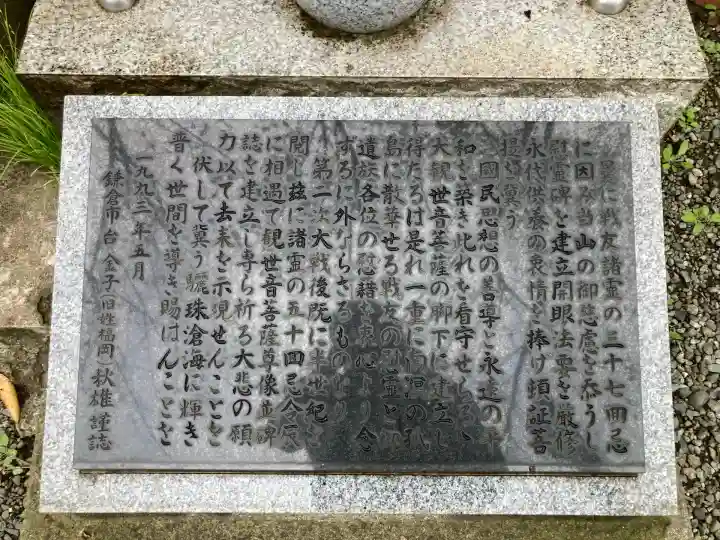 曩に戦友諸霊の三十七回忌
に因み当山の御慈慮を忝うし
慰霊碑を建立開眼法要を厳修
永代供養の衷情を捧げ頓証菩
提を冀う
国民思想の善導と永遠の平
和を希き此れを看守せらるゝ
大観世音菩薩の脚下に建立し
得たるは是れ一重に南溟の孤
島に散華せる戦友の
遺族各位の慰藉を
するに外ならざるもの
第二次大戦後既に半世紀を
閲し茲に諸霊の五十回忌今辰
に相遇て観世音菩薩尊像並碑
誌を建立し専ら祈る大悲の願
力以て去来を示現せんことを
伏して冀う驪珠滄海に輝き
普く世間を導き賜はんことを
一九九三年五月
鎌倉市 台 金子(旧姓福岡)秋雄 謹誌